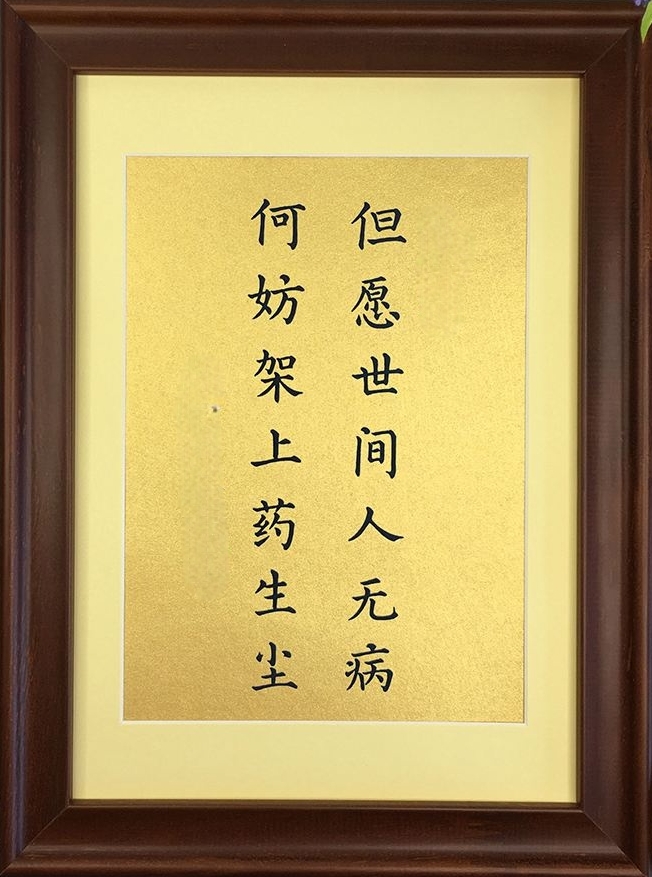 但愿世间人无病
何妨架上药生尘